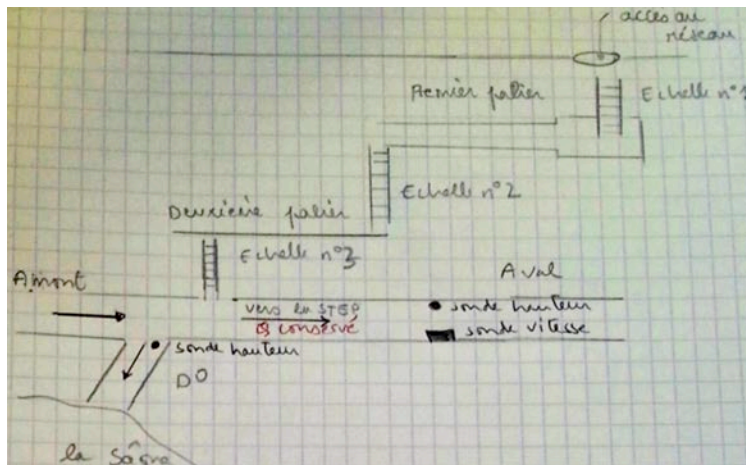 accès au
réseau
Premier palier
Echelle n°1
Echelle n°2
Deuxième palier
Echelle n°3
Amont
Aval
vers la STEP
Q conservé
sonde hauteur
sonde vitesse
sonde hauteur
DO
la Saône